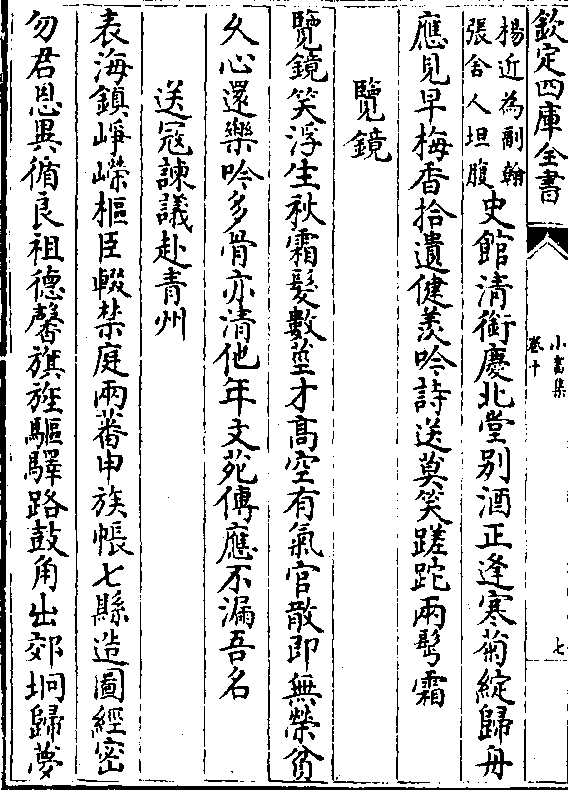 欽定四庫全書
小畜集
卷十
七
楊近為副翰
張舍人坦腹
史館清銜慶北堂别酒正逢寒菊綻歸舟
應見早梅香拾遺健羡吟詩送莫笑蹉跎兩鬂霜
覽鏡
覽鏡笑浮生秋霜髮數莖才髙空有氣官散即無榮貧
久心還樂吟多骨亦清他年文苑傳應不漏吾名
送冦諫議赴青州
表海鎮崢嶸樞臣輟禁庭兩蕃申族帳七縣造圖經密
勿君恩異循良祖德馨旗旌驅驛路鼓角出郊坰歸夢